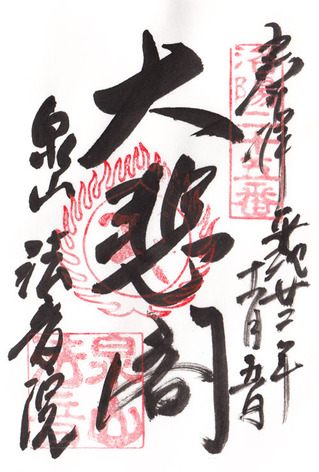 奉拝
洛陽二十五番
平成廿二年
五日
大悲閣
泉山
法音院
泉山
法音